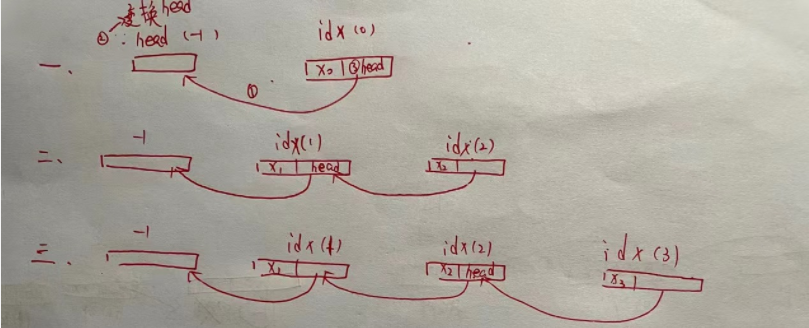 变换head
② ∵ head (-1) idx(0)
一、 x₀ ③head
①
-1 idx(1) idx(2)
二、 x₁ head x₂
-1 idx(1) idx(2) idx(3)
三、 x₁ x₂ head x₃